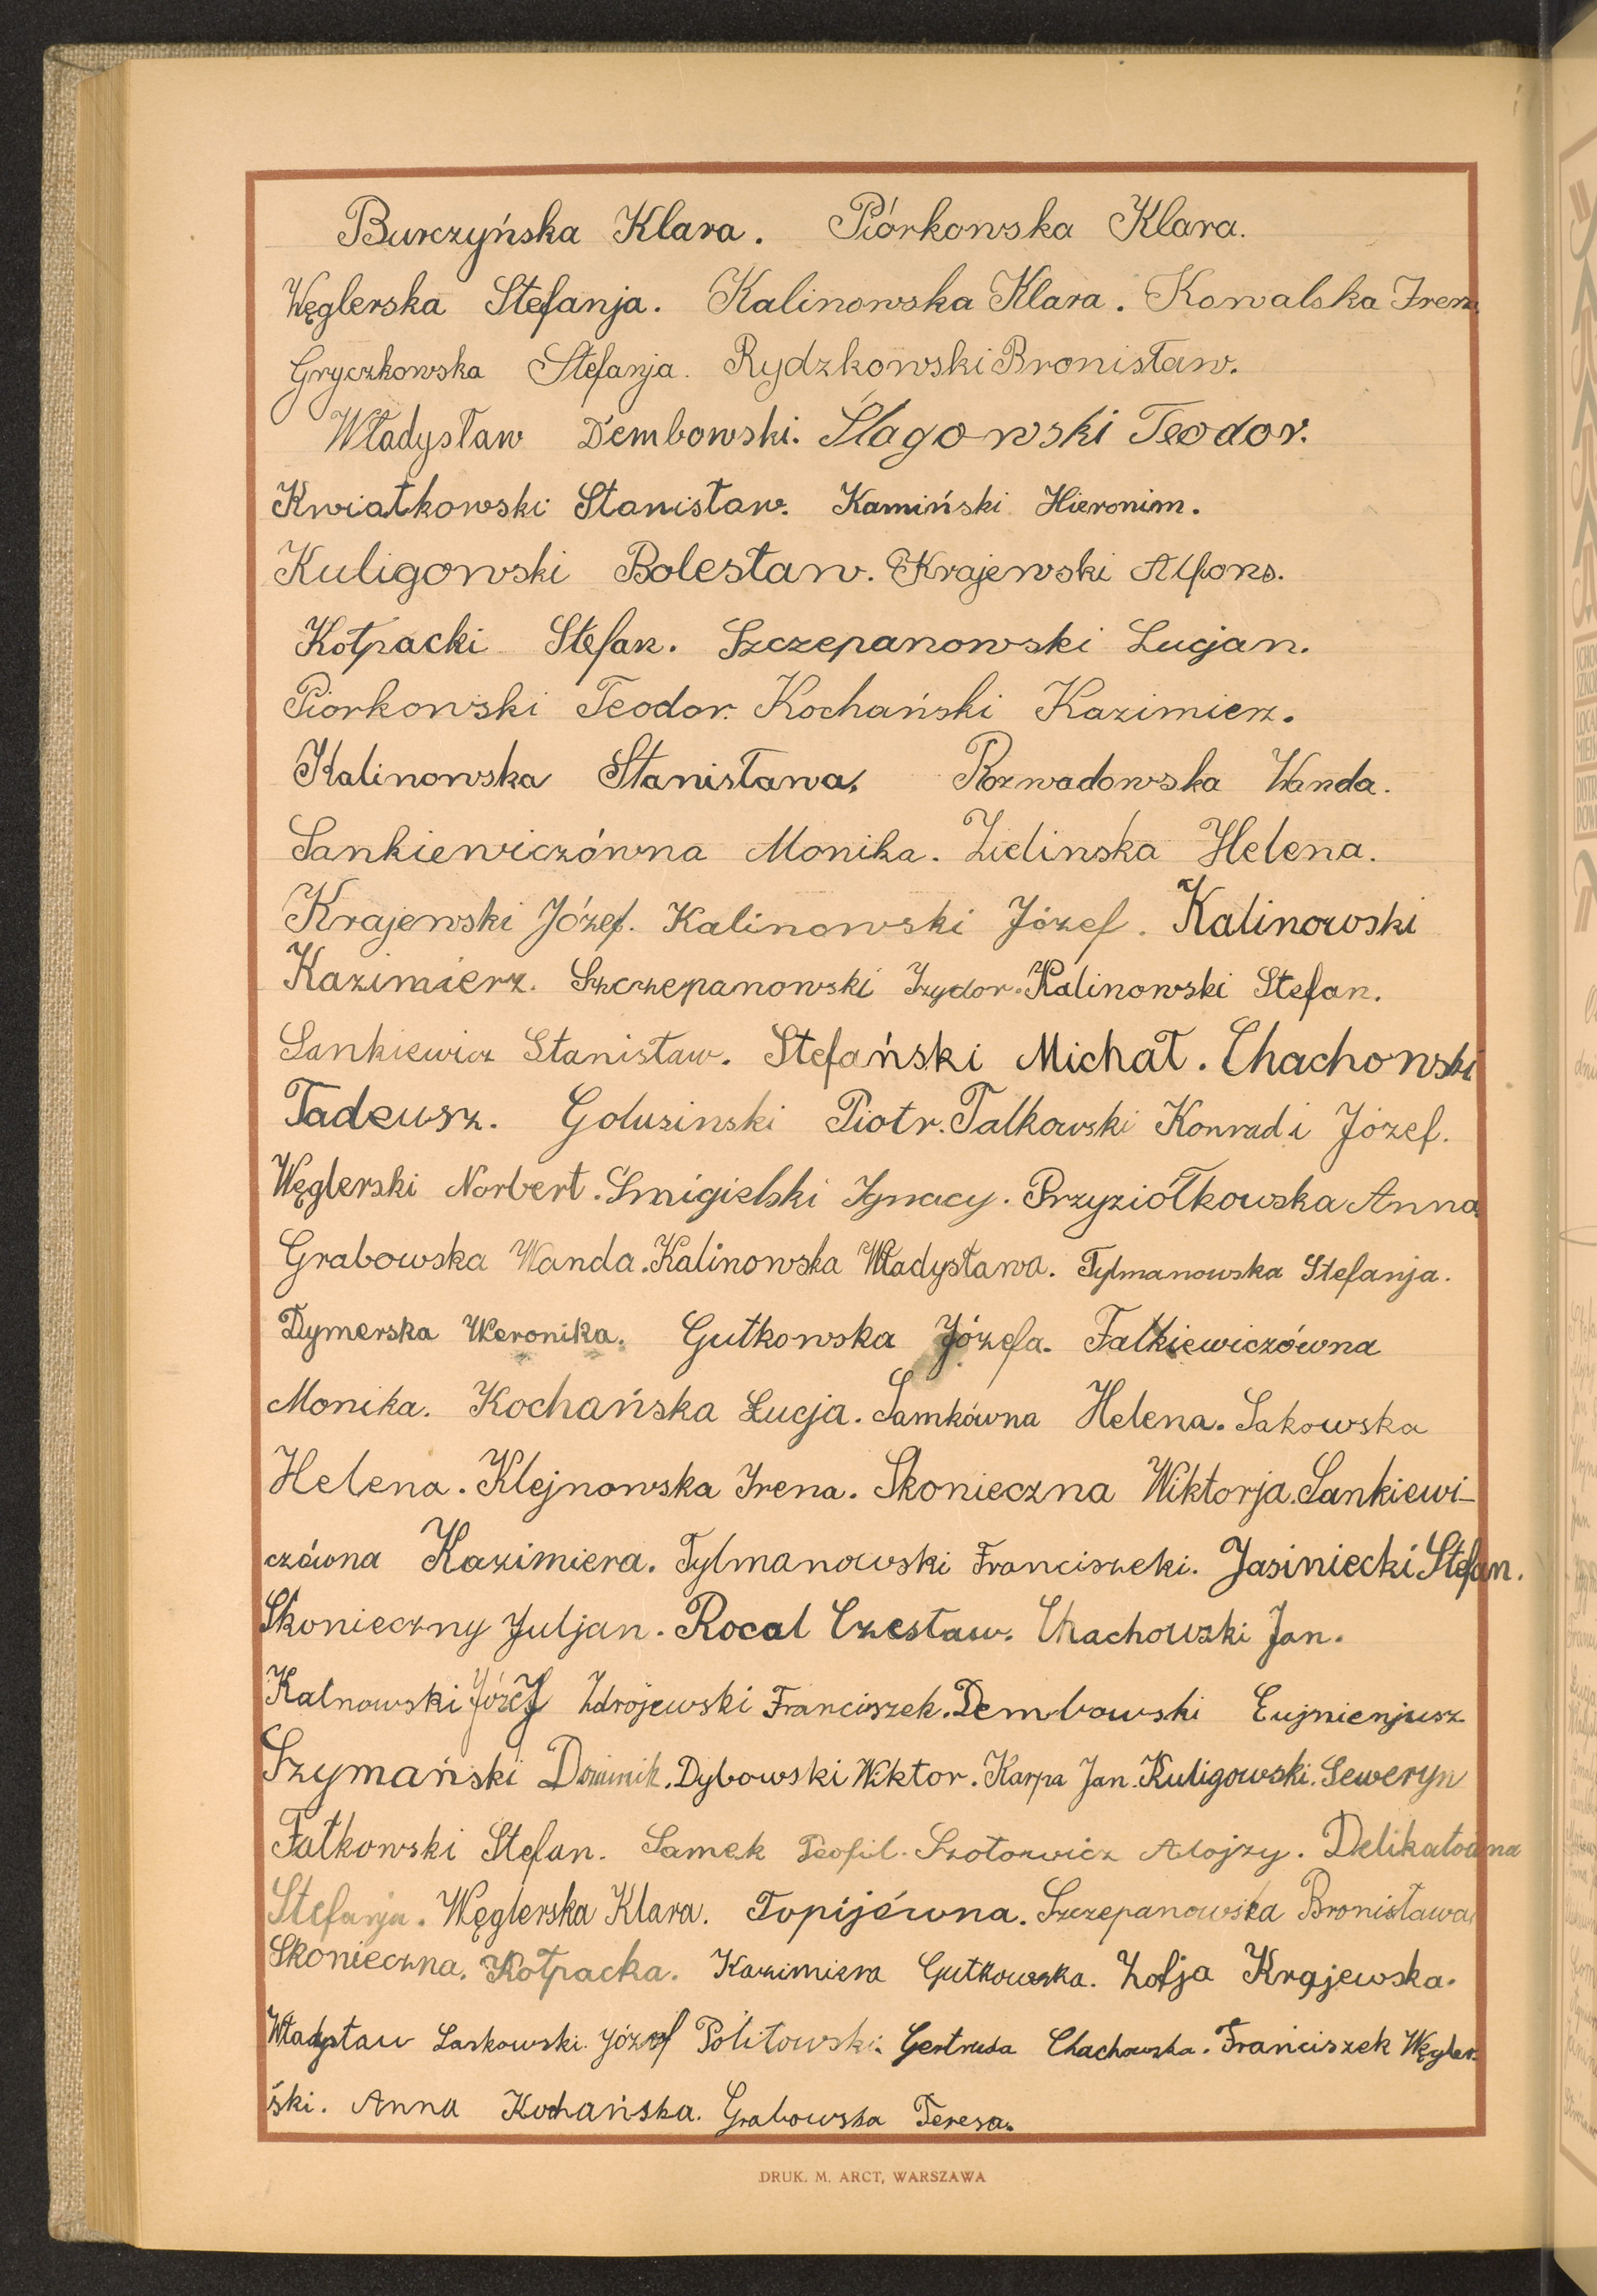 Burczyńska Klara. Piórkowska Klara.
Węglerska Stefanja. Kalinowska Klara. Kowalska Irena
Gryczkowska Stefanja. Rydzkowski Bronisław.
Władysław Dembowski. Słagowski Teodor.
Kwiatkowski Stanisław. Kamiński Hieronim.
Kuligowski Bolesław. Krajewski Alfons.
Kołpacki Stefan. Szczepanowski Lucjan.
Piorkowski Teodor. Kochański Kazimierz.
Kalinowska Stanisława. Rozwadowska Wanda.
Sankiewiczówna Monika. Zielinska Helena.
Krajewski Józef. Kalinowski Józef. Kalinowski
Kazimierz. Szczepanowski Izydor. Kalinowski Stefan.
Sankiewicz Stanisław. Stefański Michał. Chachowski
Tadeusz. Golusinski Piotr. Falkowski Konrad i Józef.
Węglerski Norbert. Śmigielski Ignacy. Przyziółkowska Anna.
Grabowska Wanda. Kalinowska Władysława. Tylmanowska Stefanja.
Dymerska Weronika. Gutkowska Józefa. Falkiewiczówna
Monika. Kochańska Łucja. Samkówna Helena. Sakowska
Helena. Klejnowska Irena. Skonieczna Wiktorja. Sankiewi-
czówna Kazimiera. Tylmanowski Franciszek. Jasiniecki Stefan.
Skonieczny Juljan. Rocal Czesław. Chachowski Jan.
Kalnowski Józef Zdrojewski Franciszek. Dembowski Eujnienjusz
Szymański Dominik. Dybowski Wiktor. Karpa Jan. Kuligowski. Seweryn
Fałkowski Stefan. Samek Teofil. Szotowicz Alojzy. Delikatówna
Stefanja. Węglerska Klara. Topijówna. Szczepanowska Bronisława
Skonieczna. Kołpacka. Kazimiera Gutkowska. Zofja Krajewska.
Władysław Laskowski. Józef Politowski. Gertruda Chachowska. Franciszek Węgler-
ski. Anna Kochańska. Grabowska Teresa.
DRUK. M. ARCT, WARSZAWA